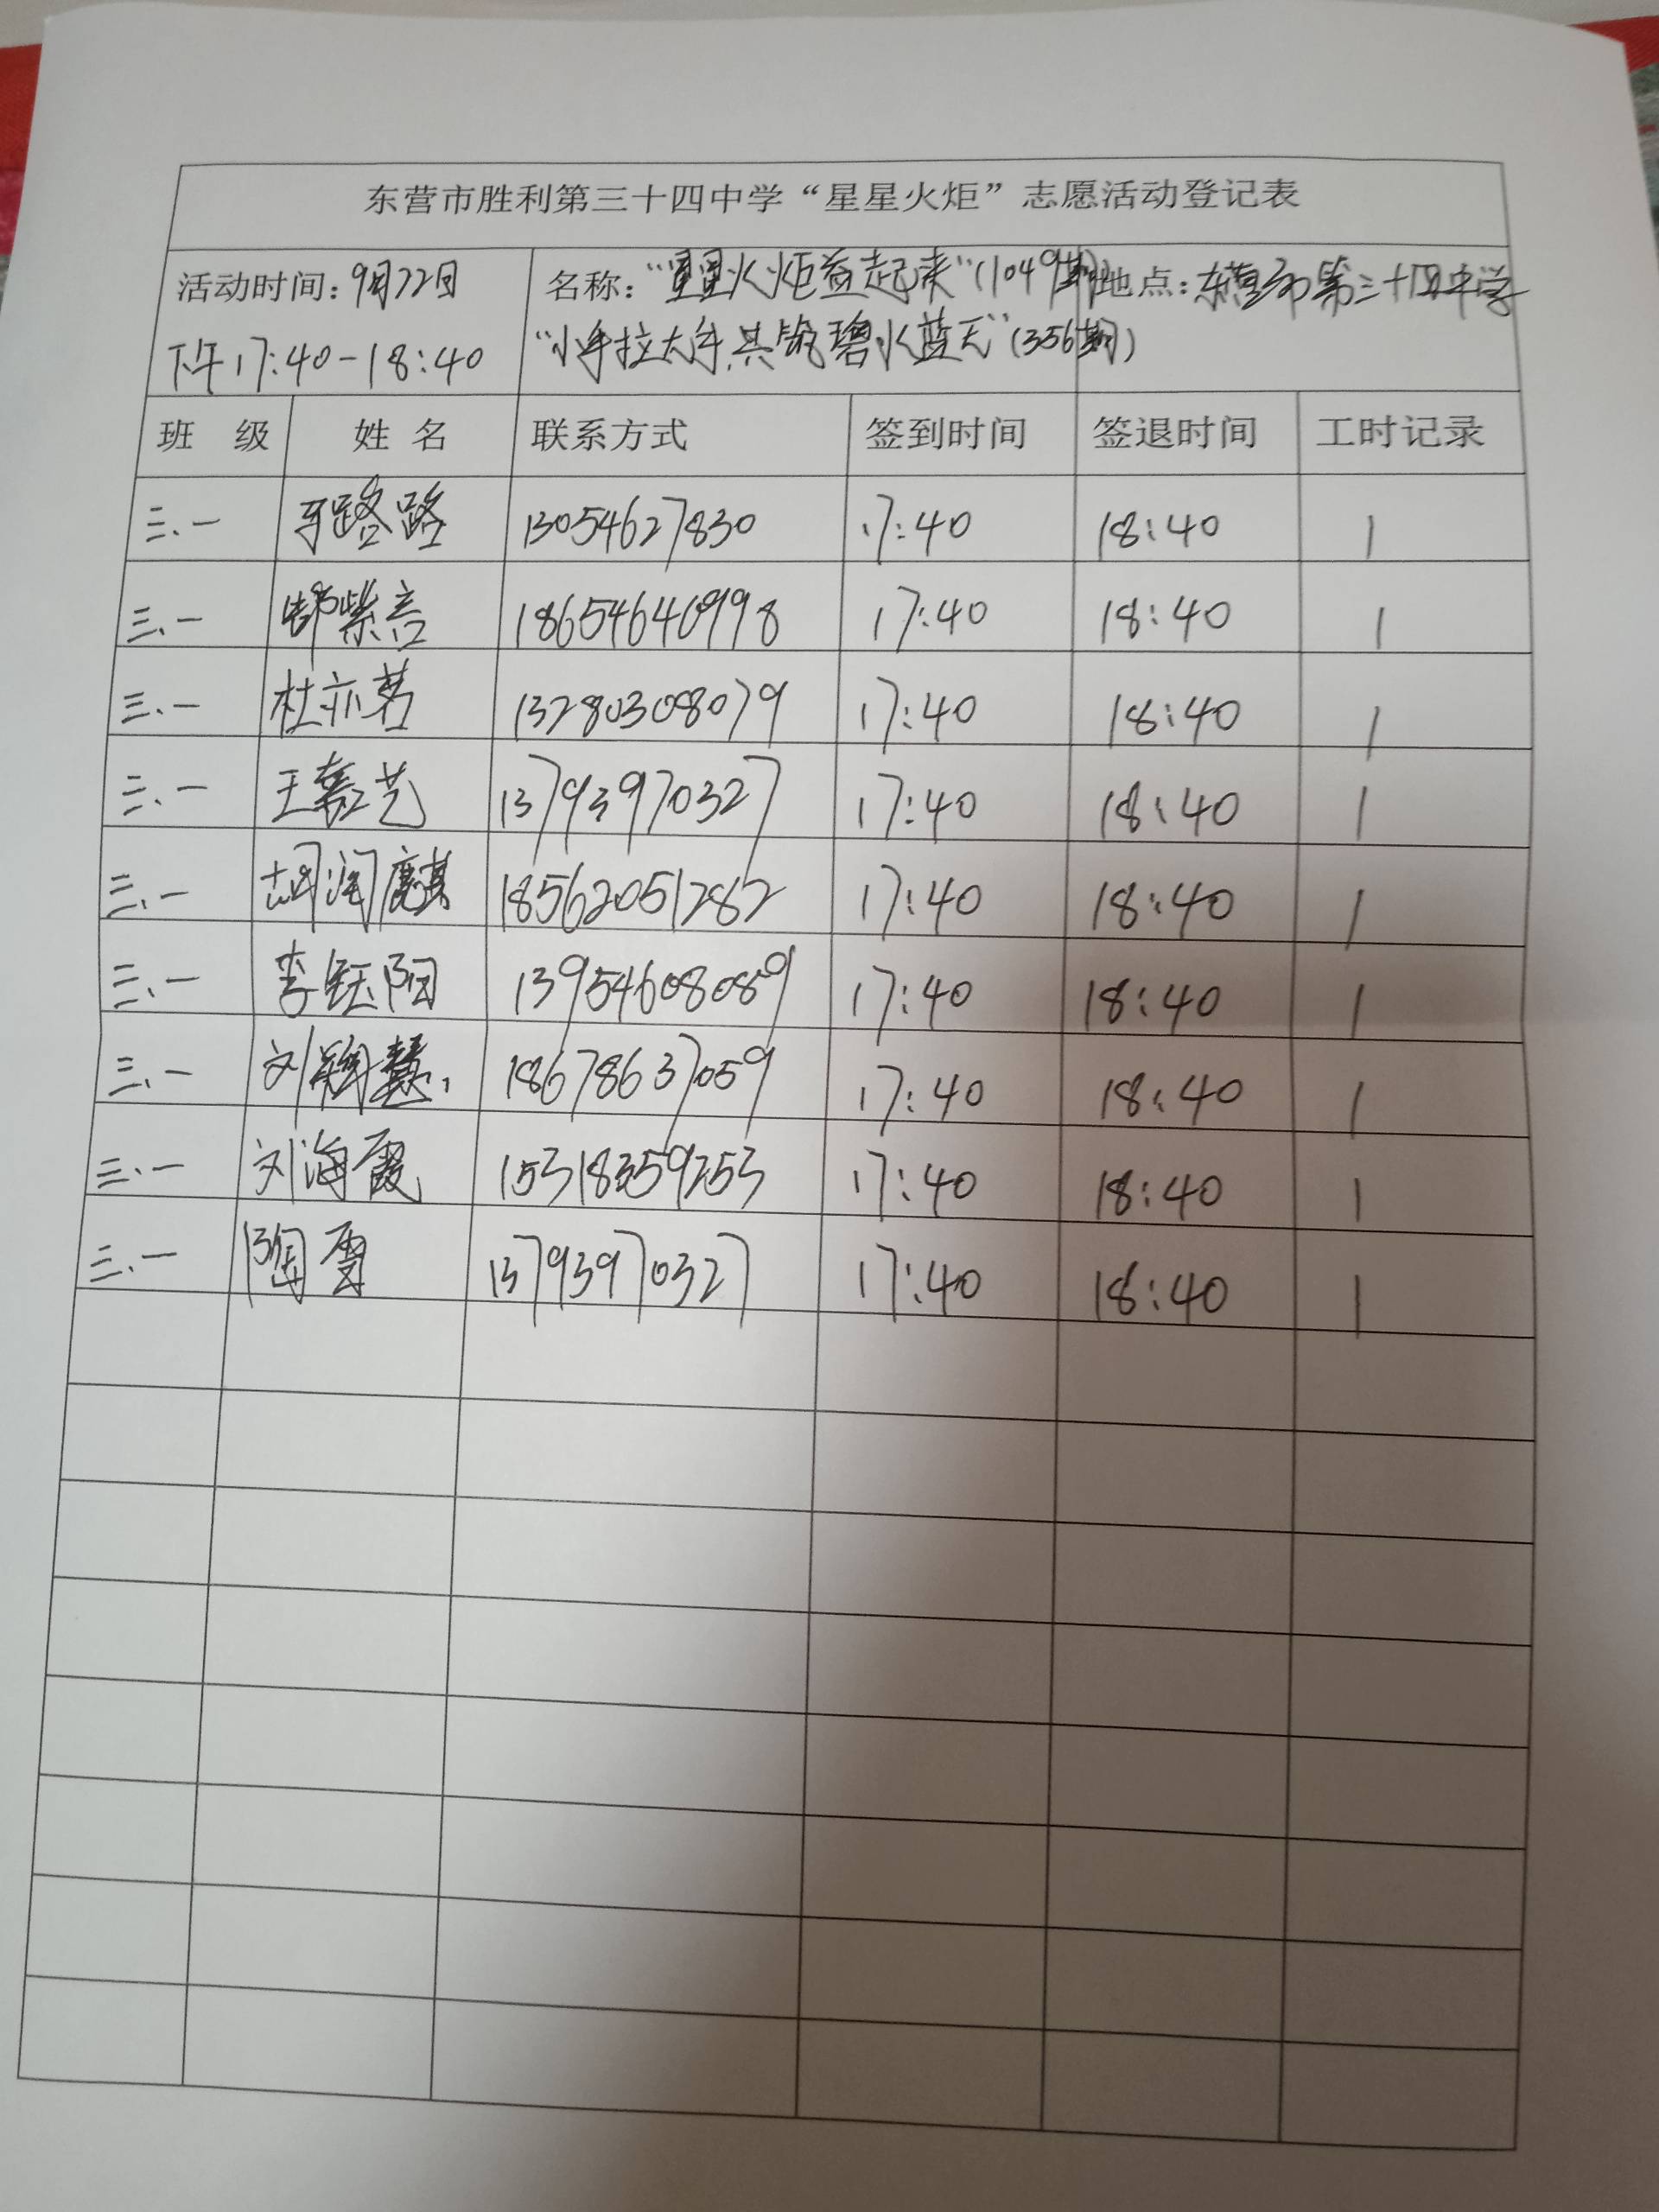 东营市胜利第三十四中学“星星火炬”志愿活动登记表
活动时间：9月22日 名称：“星星火炬益起来”（1049期） 地点：东营市第三十四中学
下午17:40-18:40 “小手拉大手，共筑碧水蓝天”（356期）
班 级 姓 名 联系方式 签到时间 签退时间 工时记录
三、一 路路 13054627830 17:40 18:40 1
三、一 紫言 18654646998 17:40 18:40 1
三、一 杜亦茗 13280308079 17:40 18:40 1
三、一 王艺 13793970327 17:40 18:40 1
三、一 胡润麒 18562051282 17:40 18:40 1
三、一 李钰阳 13954608089 17:40 18:40 1
三、一 刘慧 18678637059 17:40 18:40 1
三、一 刘海霞 15318359253 17:40 18:40 1
三、一 陶雪 13793970327 17:40 18:40 1